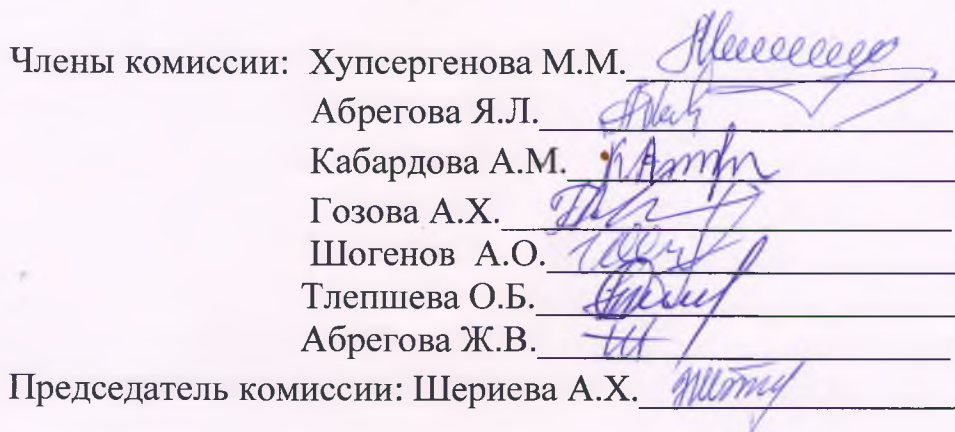 Члены комиссии: Хупсергенова М.М.
Абрегова Я.Л.
Кабардова А.М.
Гозова А.Х.
Шогенов А.О.
Тлепшева О.Б.
Абрегова Ж.В.
Председатель комиссии: Шериева А.Х.